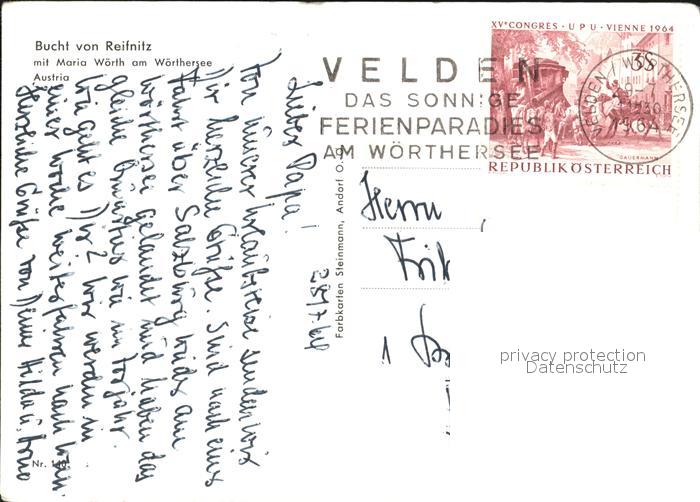 Bucht von Reifnitz
mit Maria Wörth am Wörthersee
Austria
Lieber Papa! 28.7.64
Von unserer Urlaubsreise senden wir
Dir herzliche Grüße. Sind nach einer
Fahrt über Salzburg wieder am
Wörthersee gelandet und haben das
gleiche Quartier wie im Vorjahr.
Wie geht es Dir? Wir werden in
einer Woche weiterfahren nach
Herzliche Grüße von Deine Hilda u.
Nr. 140
Farbkarten Steinmann, Andorf O.-Ö.
VELDEN
DAS SONNIGE
FERIENPARADIES
AM WÖRTHERSEE
XVe CONGRÈS · UPU · VIENNE 1964
VELDEN / WÖRTHERSEE
GAUERMANN
REPUBLIK ÖSTERREICH
Herrn
1
privacy protection
Datenschutz